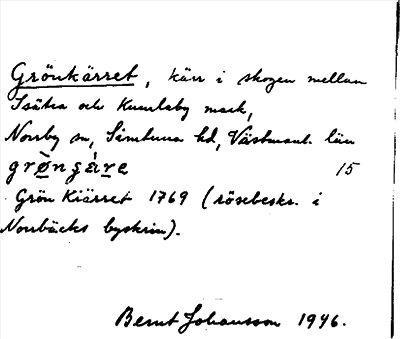 Grönkärret, kärr i skogen mellan
Isätra och Kumlaby mark,
Norrby sn, Simtuna hd, Västmanl. län
15
Grön Kiärret 1769 (rösebeskr. i
Norrbäcks byskrin).
Bernt Johansson 1946.